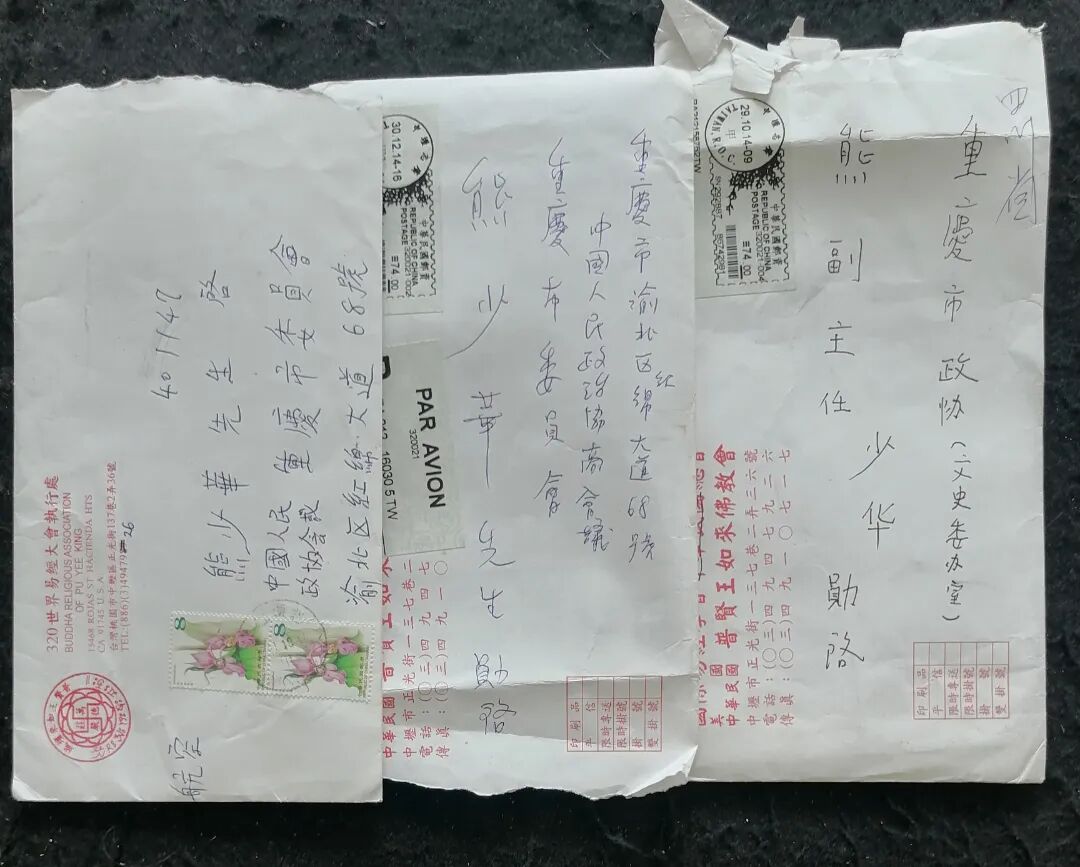 320世界易經大會執行處
BUDDHA RELIGIOUS ASSOCIATION
OF PU YEE KING
15468 ROJAS ST HACIENDA HTS
CA 91745 U.S.A
台灣桃園市中壢區正光街137巷2弄36號
TEL:(886)(3)49479
26
航空
8
8
401147
熊少華先生 啓
中國人民
政協会議
重慶市委員會
渝北区紅綿大道68號
30.12.14-16
中華民國郵資
REPUBLIC OF CHINA
POSTAGE 320021 002
74.00
PAR AVION
320021
16030 5 TW
重慶市渝北区綿大道68號
紅
中國人民政治協商會議
重慶市委員會
熊少華先生勛啓
中華民國普賢王如來
中壢市正光街一三七巷二
電話：(〇三)四九四七
傳真：(〇三)四九一〇
印刷品
平信
限時專送
限時掛號
掛號
雙掛號
29.10.14-09
TAIWAN, R.O.C.
中華民國郵資
REPUBLIC OF CHINA
POSTAGE 320021-004
74.00
四川省
重慶市政协(文史委办室)
熊副主任少华勛啓
美國
中華民國
普賢王如來佛教會
中壢市正光街一三七巷二弄三六號
電話：(〇三)四九四七九三二六
傳真：(〇三)四九一〇七一二七
印刷品
平信
限時專送
限時掛號
掛號
雙掛號